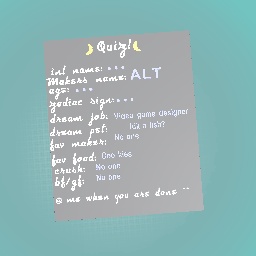 Quiz!
int name: ***
Makers name: ALT
age: ***
zodiac sign: ***
dream job: Video game designer
dream pet: Idk a fish?
fav maker: No one
fav food: Ono
crush: No one
bf/gf: No one
@ me when you are done ^^